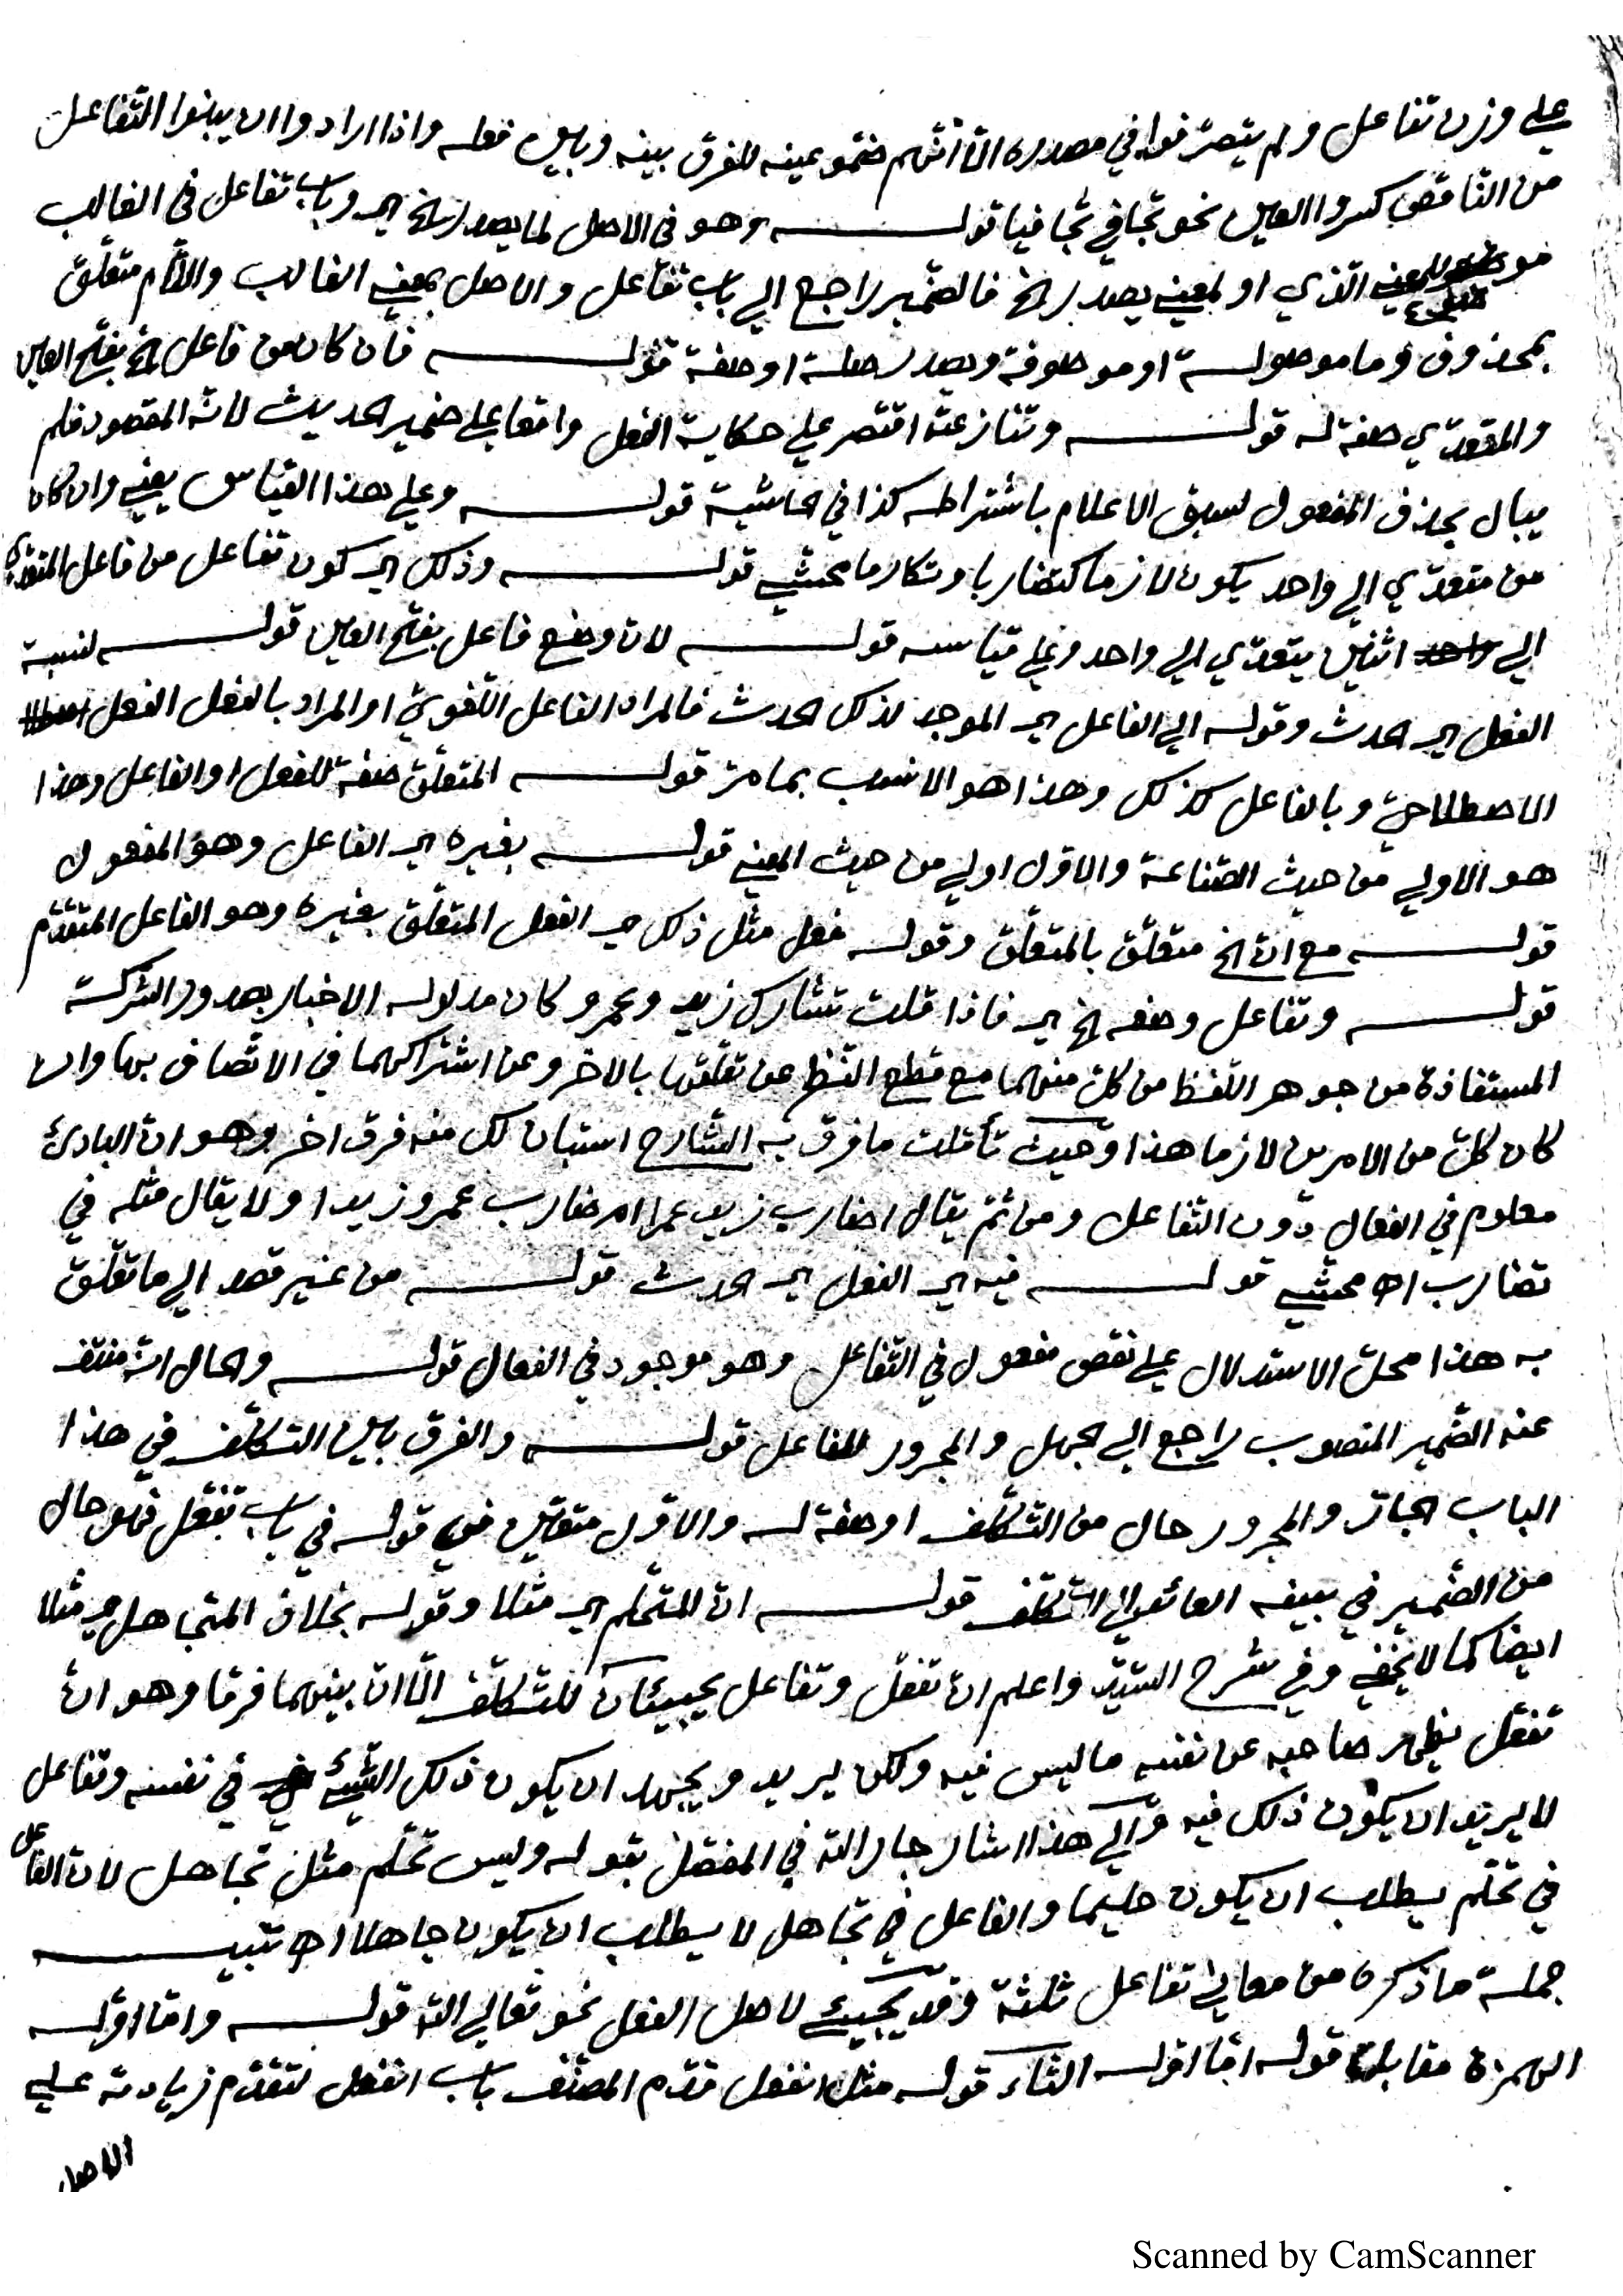 على وزن تفاعل ولم يتصرّفوا في مصدره الّا انّهم ضمّو عينه للفرق بينه وبين فعله واذا ارادوا ان يبنوا التّفاعل
من النّاقص كسروا العين نحو تجافى تجافيا قولــه وهو فى الاصل لما يصدر الخ اي وباب تفاعل فى الغالب
موضوع للمعنى الّذي او لمعنى يصدر الخ فالضّمير راجع الى باب تفاعل والاصل بمعنى الغالب واللّام متعلّق
بمحذوف وما موصولــة او موصوفة ويصدر صلة او صفة قولــه فان كان من فاعل الخ بفتح العين
والمتعدّي صفة له قولــه وتنازعته اقتصر على حكاية الفعل واقعا على ضمير الحديث لانّه المقصود فلم
يبال بحذف المفعول لسبق الاعلام باشتراطه كذا في الحاشية قولــه وعلى هذا القياس يعني وان كان
من متعدّي الى واحد يكون لازما كتضاربا وتكارما محشّي قولــه وذلك اي كون تفاعل من فاعل المتعدّي
الى اثنين يتعدّي الى واحد وعلى قياسه قولــه لان وضع فاعل بفتح العين قولــه لنسبة
الفعل اي الحدث وقوله الى الفاعل اي الموجد لذلك الحدث فالمراد الفاعل اللّغويّ او المراد بالفعل الفعل
الاصطلاحيّ وبالفاعل كذلك وهذا هو الانسب بما مرّ قولــه المتعلّق صفة للفعل او الفاعل وهذا
هو الاولى من حيث الصّناعة والاوّل اولى من حيث المعنى قولــه بغيره اي الفاعل وهو المفعول
قولــه مع انّ الخ متعلّق بالمتعلّق وقوله فعل مثل ذلك اي الفعل المتعلّق بغيره وهو الفاعل المتقدّم
قولــه وتفاعل وضعه الخ اي فاذا قلت تشارك زيد وعمرو كان مدلوله الاخبار بصدور الشّركة
المستفادة من جوهر اللّفظ من كلّ منهما مع قطع النّظر عن تعلّقها بالاخر وعن اشتراكهما في الاتّصاف بها وان
كان كلّ من الامرين لازما هذا وحيث تأمّلت ما فرق به الشّارح استبان لك منه فرق اخر وهو انّ البادئ
معلوم في الفعال دون التّفاعل ومن ثمّ يقال اضارب زيد عمرا ام ضارب عمرو زيدا ولا يقال مثله في
تضارب اه محشّي قولــه فيه اي الفعل اي الحدث قولــه من غير قصد الى ما تعلّق
به هذا محلّ الاستدلال على نقص مفعول في التّفاعل وهو موجود في الفعال قولــه والحال انّه منتف
عنه الضّمير المنصوب راجع الى الجهل والمجرور للفاعل قولــه والفرق بين التّكلّف في هذا
الباب الجارّ والمجرور حال من التّكلّف او صفة له والاوّل متعيّن في قوله في باب تفعّل فهو حال
من الضّمير في بينه العائد الى التّكلّف قولــه انّ المتحلّم اي مثلا وقوله بخلاف المتجاهل اي مثلا
ايضا كما لا يخفى وفي شرح السّيّد واعلم انّ تفعّل وتفاعل يجيئان للتّكلّف الّا انّ بينهما فرقا وهو انّ
تفعّل يظهر صاحبه عن نفسه ما ليس فيه ولكن يريد ويجهد ان يكون ذلك الشّيئ في نفسه وتفاعل
لا يريد ان يكون ذلك فيه والى هذا اشار جار اللّه في المفصّل بقوله وليس تحلّم مثل تجاهل لانّ الفاعل
في تحلّم يطلب ان يكون حليما والفاعل في تجاهل لا يطلب ان يكون جاهلا اه تنبيــه
جملة ما ذكره من معاني تفاعل ثلثة وقد يجيئ لاصل الفعل نحو تعالى اللّه قولــه وامّا اوّله
الهمزة مقابل قوله امّا اوّله التّاء قوله مثل انفعل قدّم المصنّف باب انفعل لتقدّم زيادته على
الاصل
Scanned by CamScanner